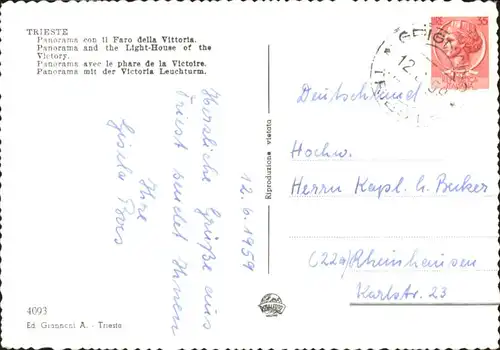 TRIESTE
Panorama con il Faro della Vittoria.
Panorama and the Light-House of the
Victory.
Panorama avec le phare de la Victoire.
Panorama mit der Victoria Leuchturm.
12.6.1959
Herzliche Grüße aus
Triest sendet Ihnen
Ihre
Gisela
4093
Ed. Giannoni A. - Trieste
Riproduzione vietata
35
12
Deutschland
Hochw.
Herrn Kapl. H. Becker
(22a) Rheinhausen
Karlstr. 23